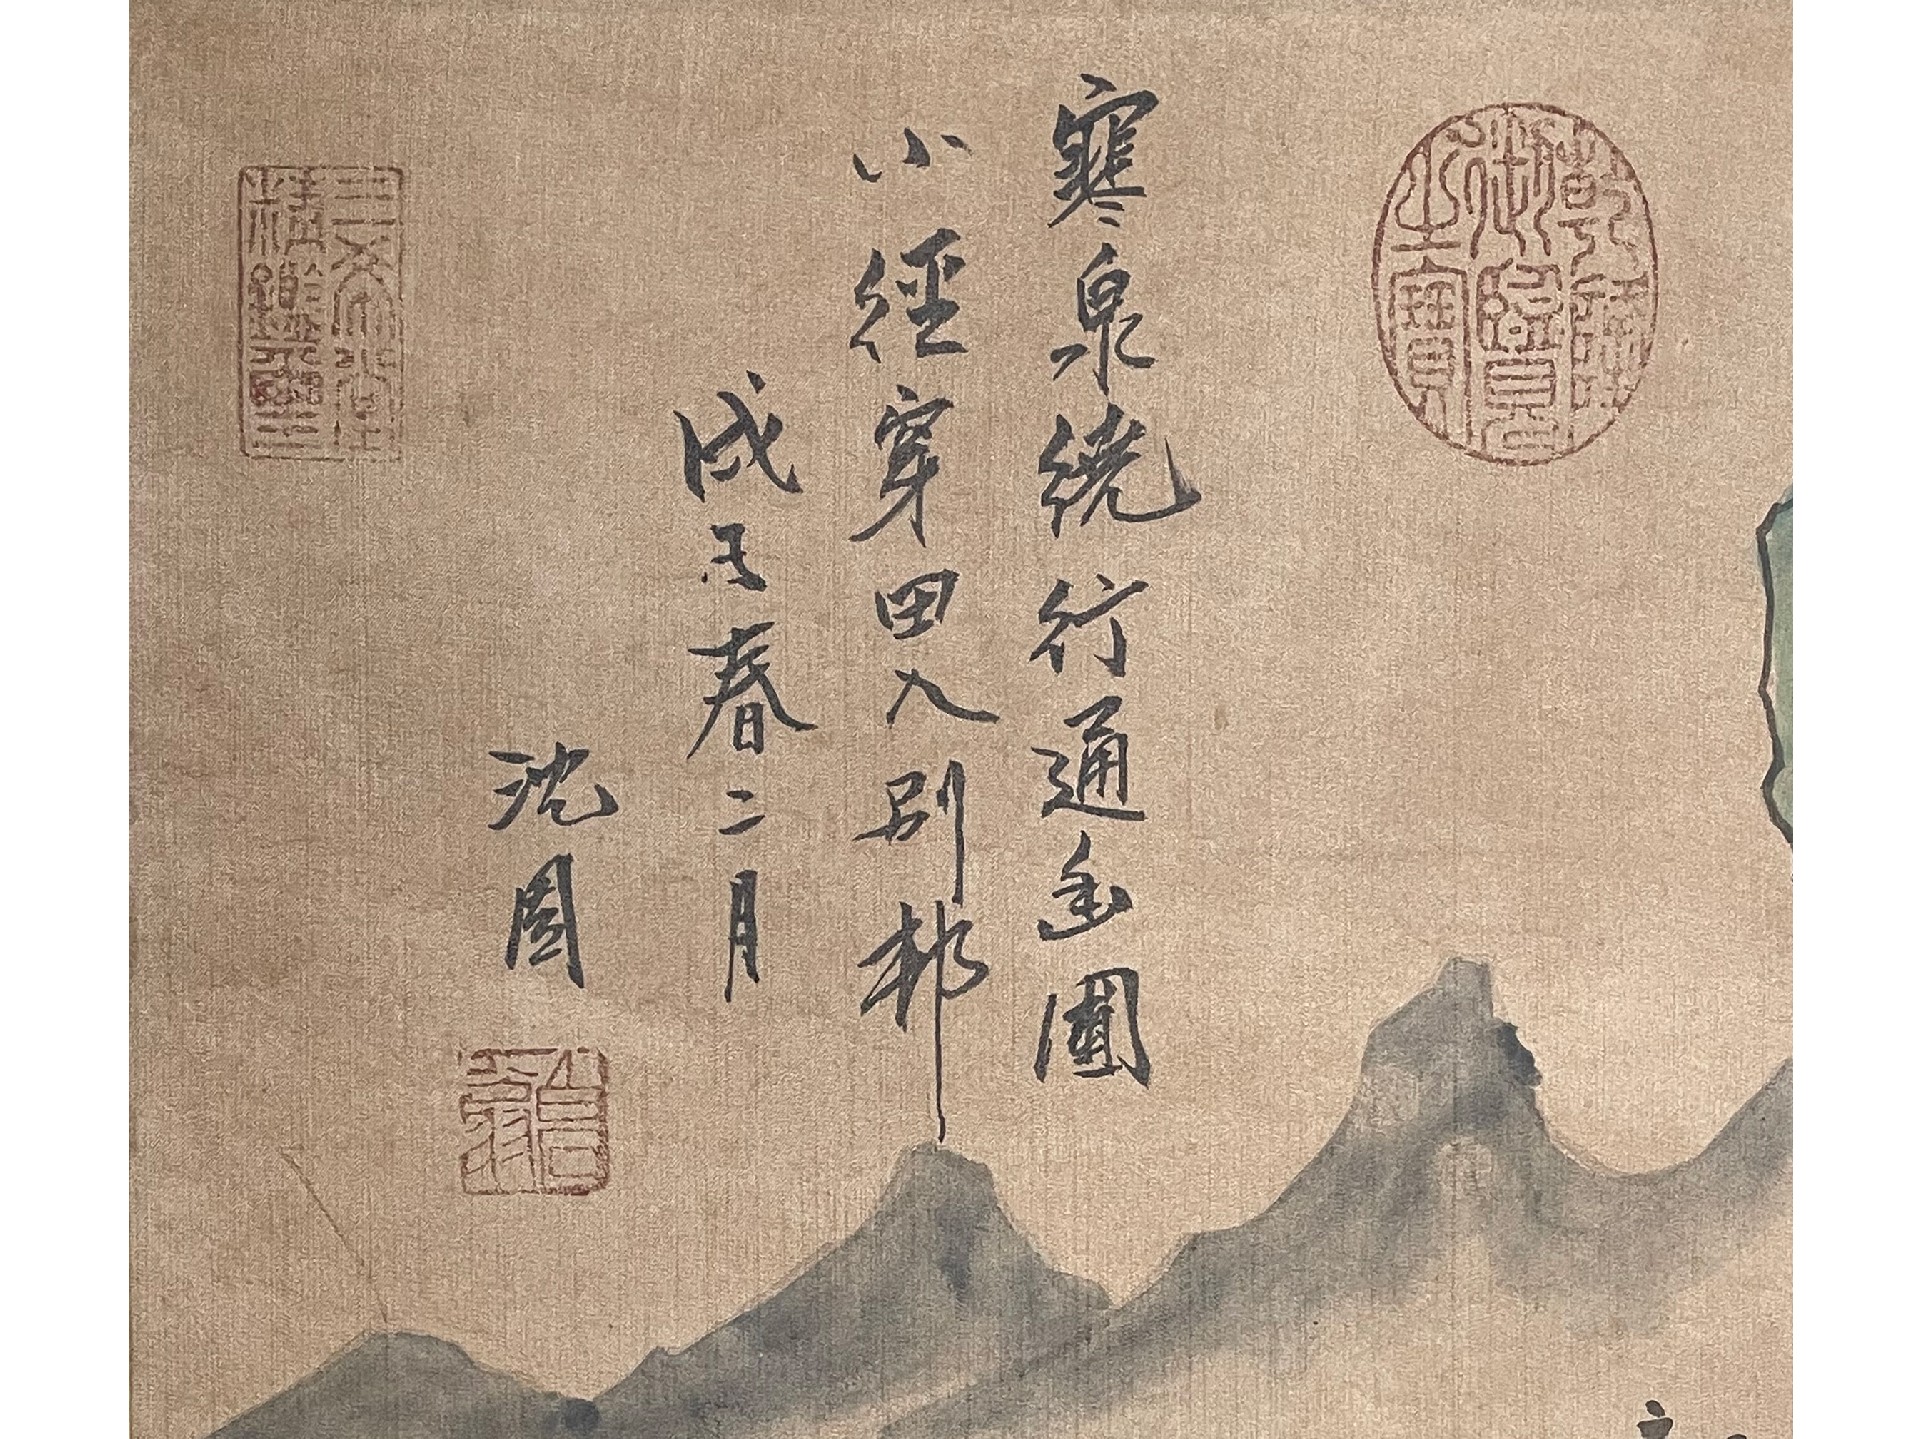 乾隆御覽之寶
寒泉繞行通幽圃
小徑穿田入別邨
戊子春二月
沈周
啟南
三希堂精鑑璽